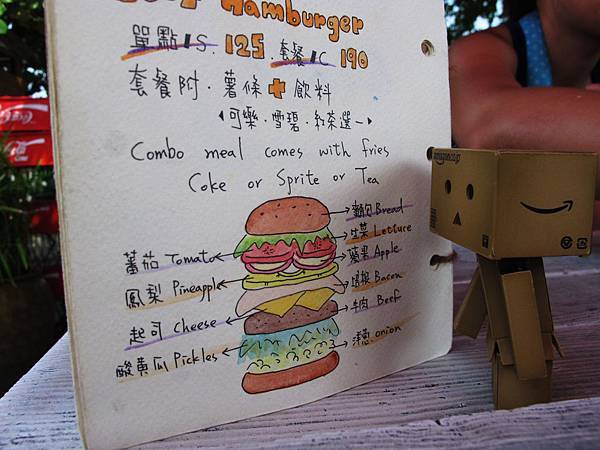 Hamburger
單點/S. 125 套餐/C 190
套餐附・薯條+飲料
(可樂・雪碧・紅茶選一)
Combo meal comes with fries
Coke or Sprite or Tea
麵包 Bread
生菜 Lettuce
蕃茄 Tomato
蘋果 Apple
鳳梨 Pineapple
培根 Bacon
起司 Cheese
牛肉 Beef
酸黃瓜 Pickles
洋蔥 onion
amazon.co.jp